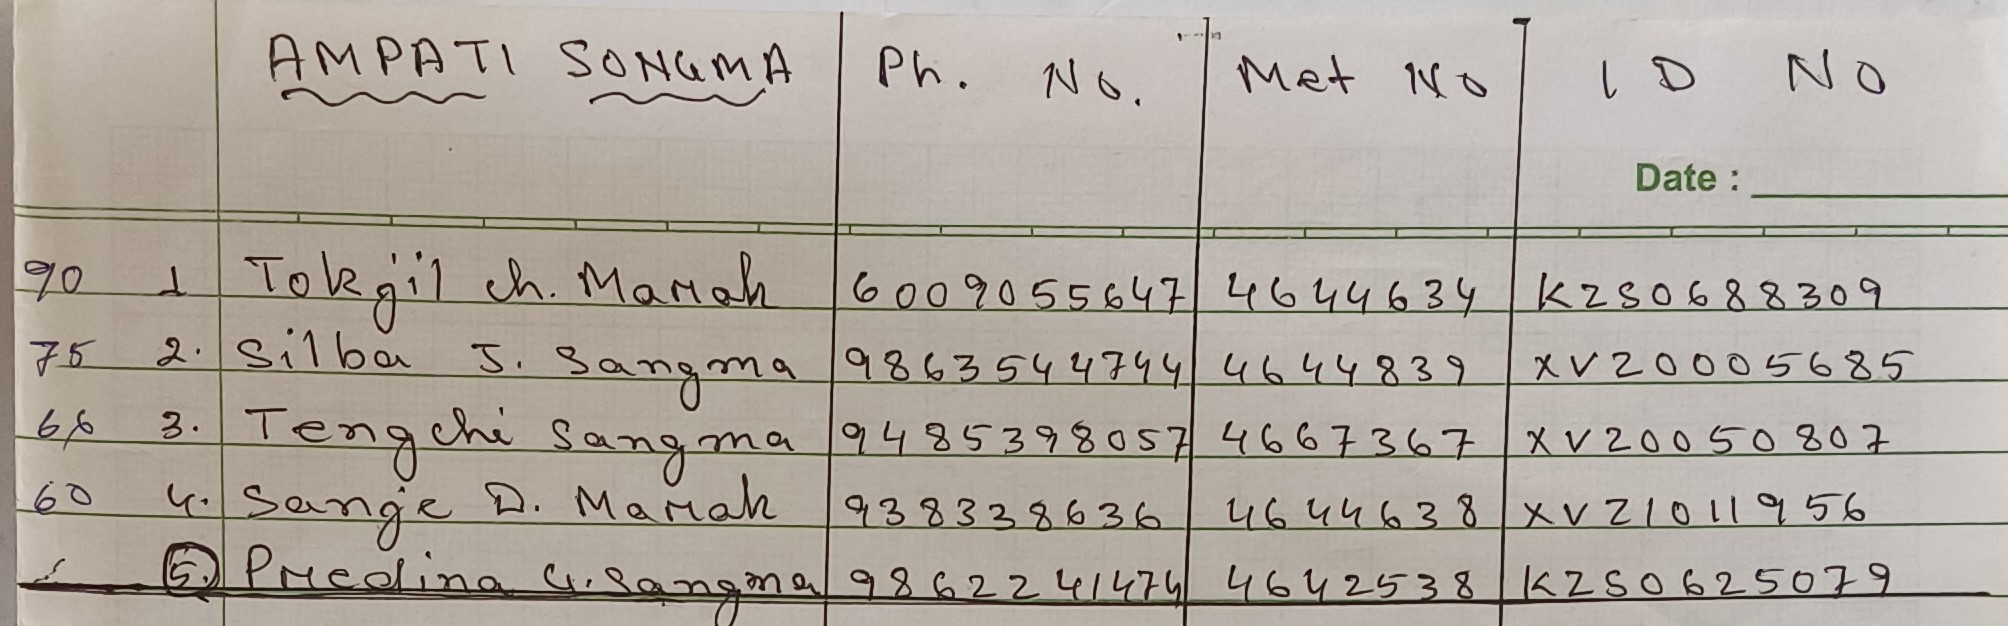 AMPATI SONGMA Ph. No. Met No ID NO
Date :
90 1 Tokjil ch. Marak 6009055647 4644634 KZS0688309
75 2. Silba J. Sangma 9863544744 4644839 XVZ0005685
66 3. Tengchi Sangma 9485398057 4667367 XVZ0050807
60 4. Sangje D. Marak 938338636 4644638 XVZ1011956
5. Predina G. Sangma 9862241474 4642538 KZS0625079